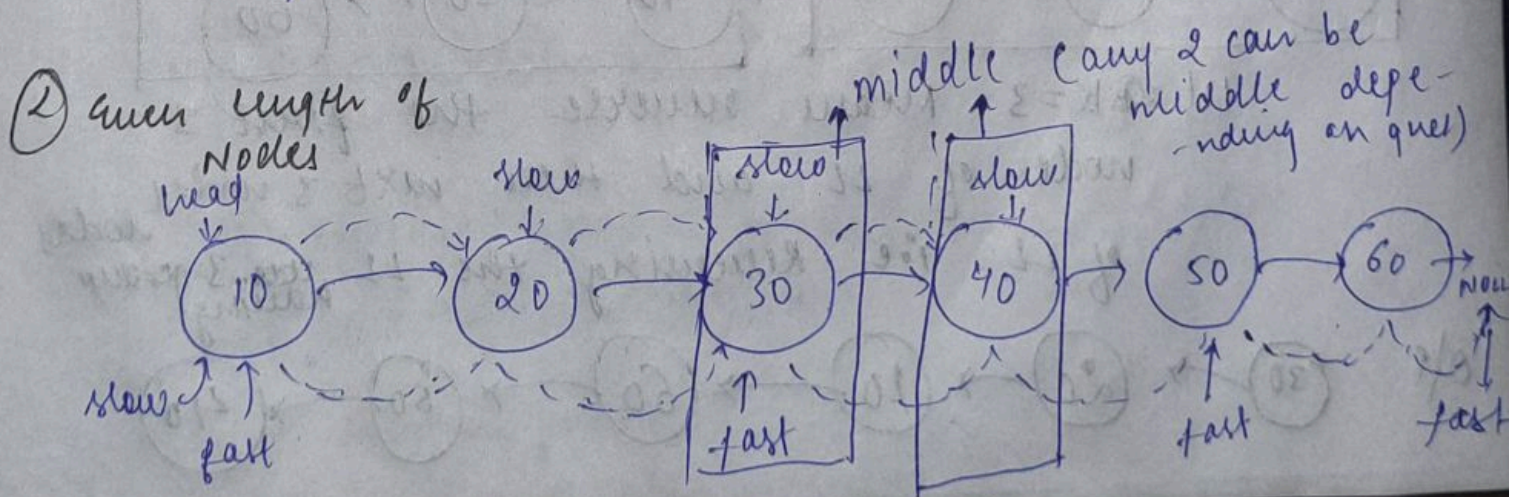 ② Even length of
Nodes
middle (any 2 can be
middle depe-
-nding on ques)
head
slow
slow
slow
10
20
30
40
50
60
Null
slow
fast
fast
fast
fast